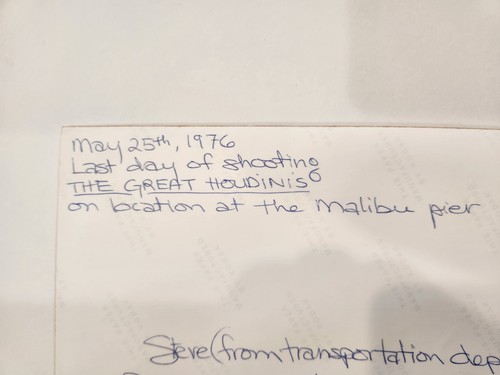 May 25th, 1976
Last day of shooting
THE GREAT HOUDINIS
on location at the Malibu pier
Steve (from transportation dep